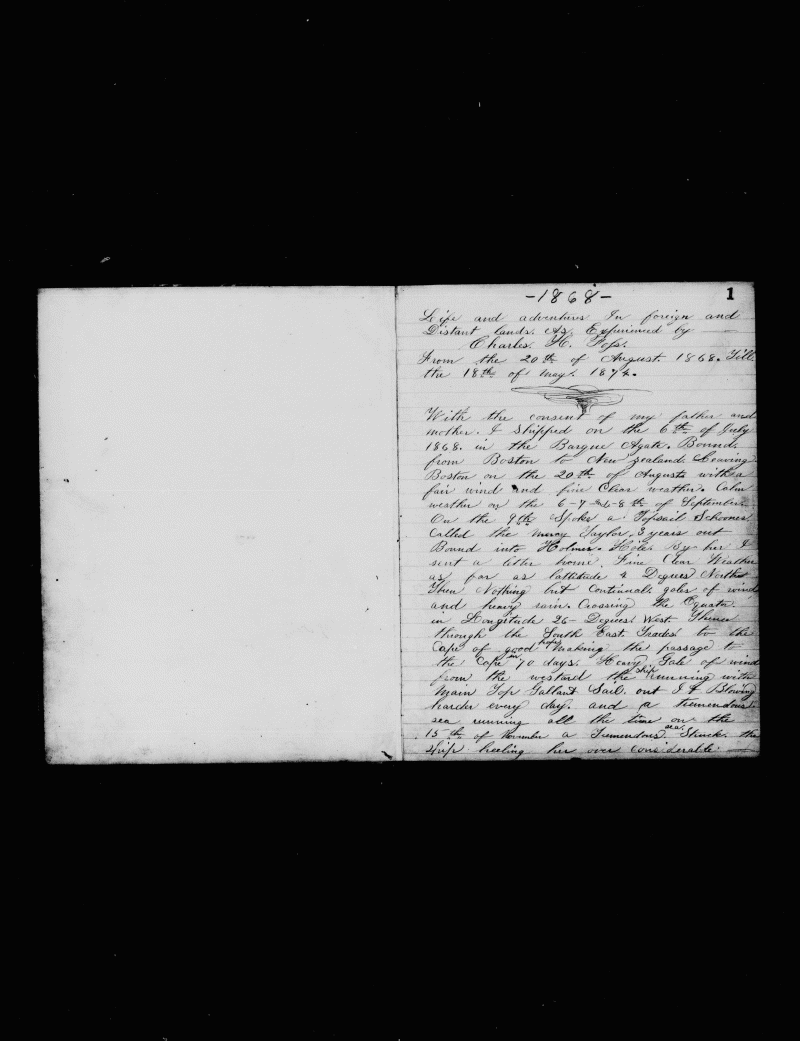 -1868-
1
Life and adventures In foreign and
Distant lands. As Experienced by
Charles. H.
From the 20th of August. 1868. Till
the 18th of may. 1874.
With the consent of my father and
mother. I Shipped on the 6th of July
1868. in the Barque Agate. Bound.
from Boston to New zealand. Leaving
Boston on the 20th of August with a
fair wind and fine Clear weather. Calm
weather on the 6-7-&-8th of September.
On the 9th Spoke a Topsail Schooner
Called the mercy Taylor. 3 years out
Bound into Holmes. Hole. By her I
sent a letter home. Fine Clear Weather
as far as lattitude 4 Degrees North
Then Nothing but Continual. gales of wind
and heavy rain. Crossing the Equator.
in Longitude 26- Degrees. West. Thence
through the South East. Trades. to the
Cape of good hope making the passage to
the Cape in 70 days. Heavy Gale of wind
from the westard the ship running with
Main Top Gallant Sail. out I Blowing
harder every day. and a tremendous.
sea running all the time on the
15th of November a Tremendous sea. Struck. the
Ship heeling her over considerable.